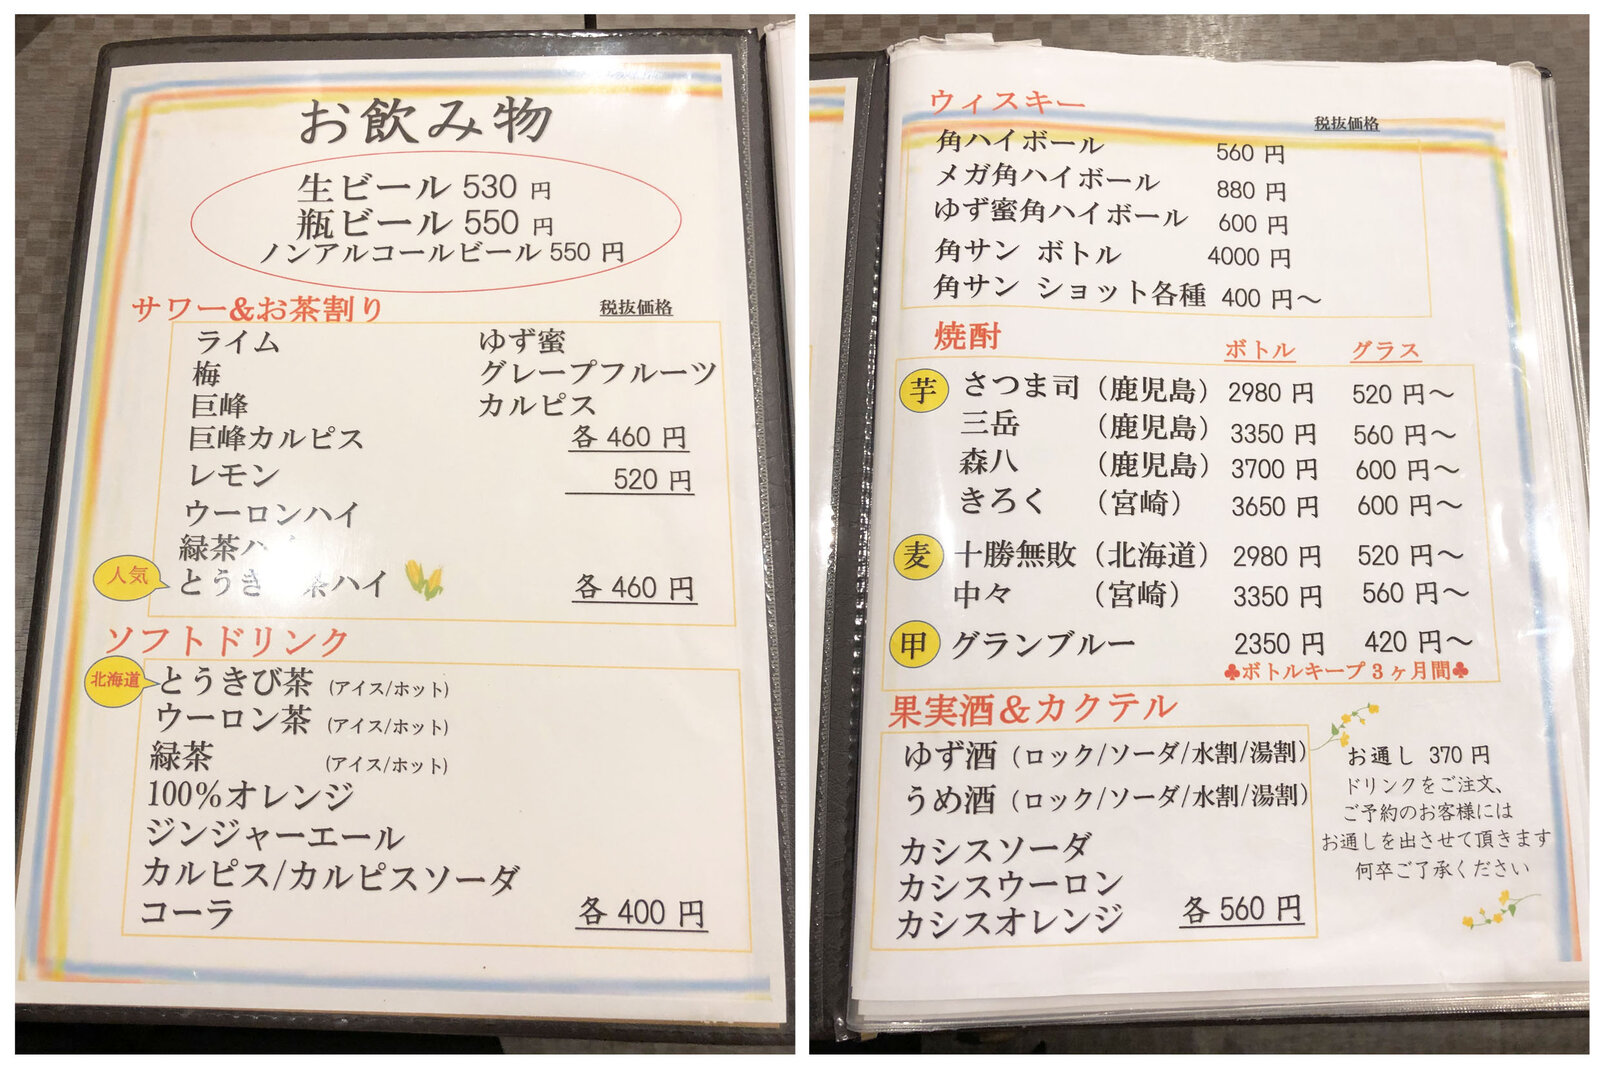 お飲み物
生ビール 530 円
瓶ビール 550 円
ノンアルコールビール 550 円
サワー&お茶割り 税抜価格
ライム ゆず蜜
梅 グレープフルーツ
巨峰 カルピス
巨峰カルピス 各 460 円
レモン 520 円
ウーロンハイ
緑茶ハ
人気 とうき 茶ハイ 各 460 円
ソフトドリンク
北海道 とうきび茶 (アイス/ホット)
ウーロン茶 (アイス/ホット)
緑茶 (アイス/ホット)
100%オレンジ
ジンジャーエール
カルピス/カルピスソーダ
コーラ 各 400 円
ウィスキー 税抜価格
角ハイボール 560 円
メガ角ハイボール 880 円
ゆず蜜角ハイボール 600 円
角サン ボトル 4000 円
角サン ショット各種 400 円～
焼酎 ボトル グラス
芋 さつま司 (鹿児島) 2980 円 520 円～
三岳 (鹿児島) 3350 円 560 円～
森八 (鹿児島) 3700 円 600 円～
きろく (宮崎) 3650 円 600 円～
麦 十勝無敗 (北海道) 2980 円 520 円～
中々 (宮崎) 3350 円 560 円～
甲 グランブルー 2350 円 420 円～
♣ボトルキープ 3 ヶ月間♣
果実酒&カクテル
ゆず酒 (ロック/ソーダ/水割/湯割)
うめ酒 (ロック/ソーダ/水割/湯割)
カシスソーダ
カシスウーロン
カシスオレンジ 各 560 円
お通し 370 円
ドリンクをご注文、
ご予約のお客様には
お通しを出させて頂きます
何卒ご了承ください